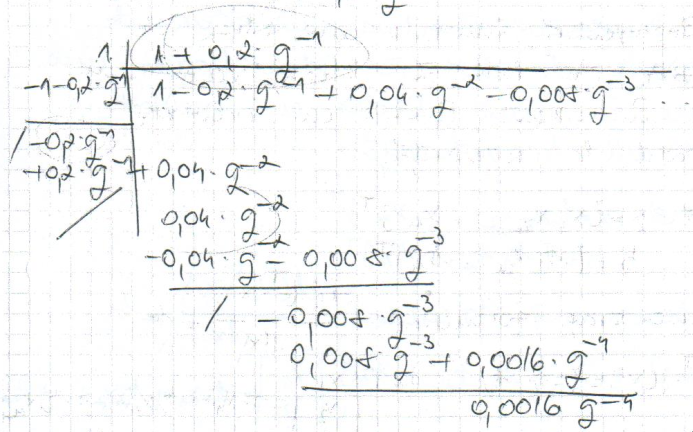 1 | 1 + 0,2 · g⁻¹
-1-0,2·g⁻¹ | 1-0,2·g⁻¹ + 0,04·g⁻² -0,008·g⁻³ ..
/ -0,2·g⁻¹
+0,2·g⁻¹ + 0,04·g⁻²
/ 0,04·g⁻²
-0,04·g⁻² - 0,008·g⁻³
/ -0,008·g⁻³
0,008 g⁻³ + 0,0016·g⁻⁴
0,0016 g⁻⁴